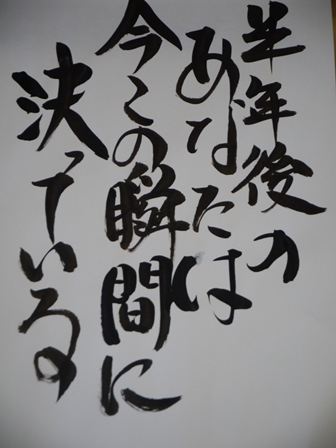 半年後の
あなたは
今この瞬間に
決っている